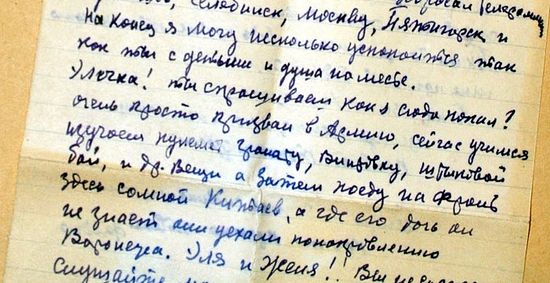 Челябинск, Москву, Пятигорск и
На конец я могу несколько успокоится так
как ты с детьми и душа на месте.
Улечка! ты спрашиваеш как я сюда попал?
очень просто призван в Армию, сейчас учимся
изучаем пулемет гранату, винтовку, штыковой
бой, и др. Вещи а затем поеду на фронт
здесь сомной, а где его дочь он
не знает они уехали понаправлению
Воронежа. Уля и Женя!! Вы
Слушайте